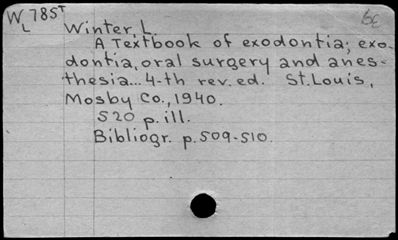 W 785T
L
Winter, L.
A Textbook of exodontia; exo-
dontia, oral surgery and anes-
thesia... 4-th rev. ed. St. Louis,
Mosby Co., 1940.
520 p. ill.
Bibliogr. p. 509-510.